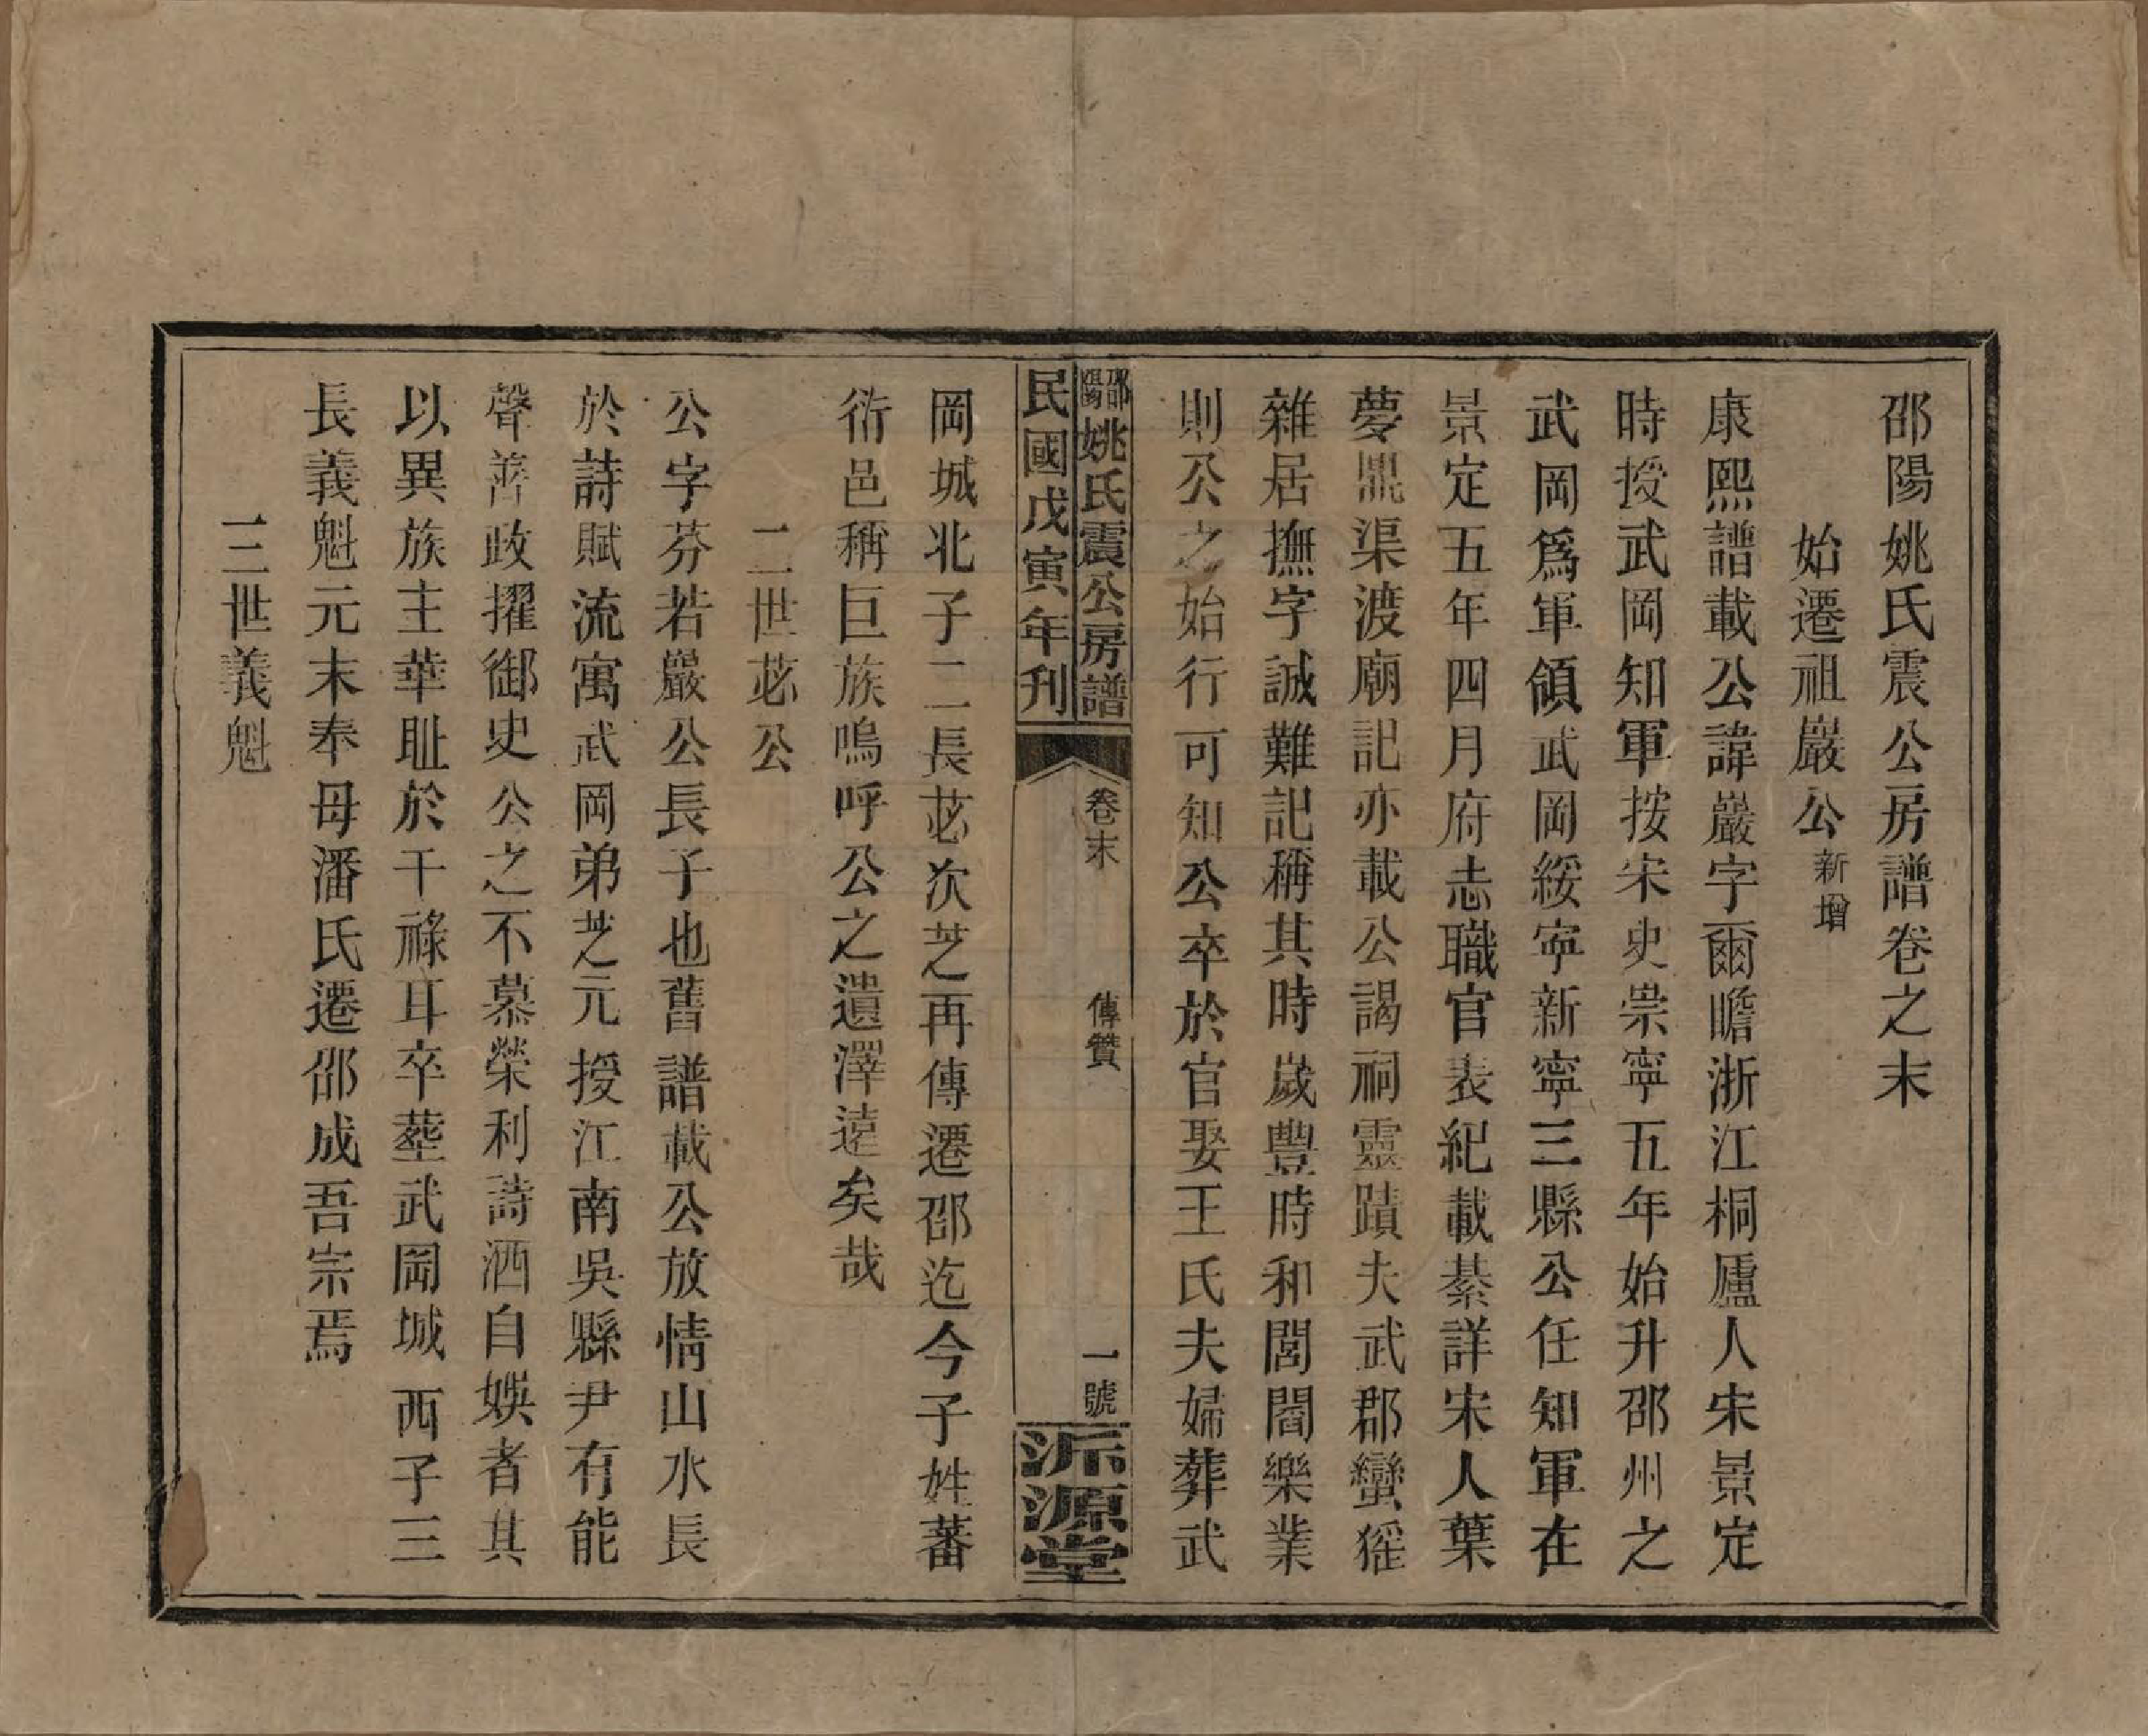 邵陽姚氏震公房譜卷之末
始遷祖巖公新增
康熙譜載公諱巖字爾瞻浙江桐廬人宋景定
時授武岡知軍按宋史崇寧五年始升邵州之
武岡爲軍領武岡綏寧新寧三縣公任知軍在
景定五年四月府志職官表紀載綦詳宋人葉
夢鼎渠渡廟記亦載公謁祠靈蹟夫武郡蠻猺
雜居撫字誠難記稱其時歲豐時和閭閻樂業
則公之始行可知公卒於官娶王氏夫婦葬武
邵陽姚氏震公房譜
民國戊寅年刊
卷末
傳贊
一號
派源堂
岡城北子二長苾次芝再傳遷邵迄今子姓蕃
衍邑稱巨族嗚呼公之遺澤遠矣哉
二世苾公
公字芬若嚴公長子也舊譜載公放情山水長
於詩賦流寓武岡弟芝元授江南吳縣尹有能
聲善政擢御史公之不慕榮利詩酒自娛者其
以異族主華耻於干祿耳卒塟武岡城西子三
長義魁元末奉母潘氏遷邵成吾宗焉
三世義魁